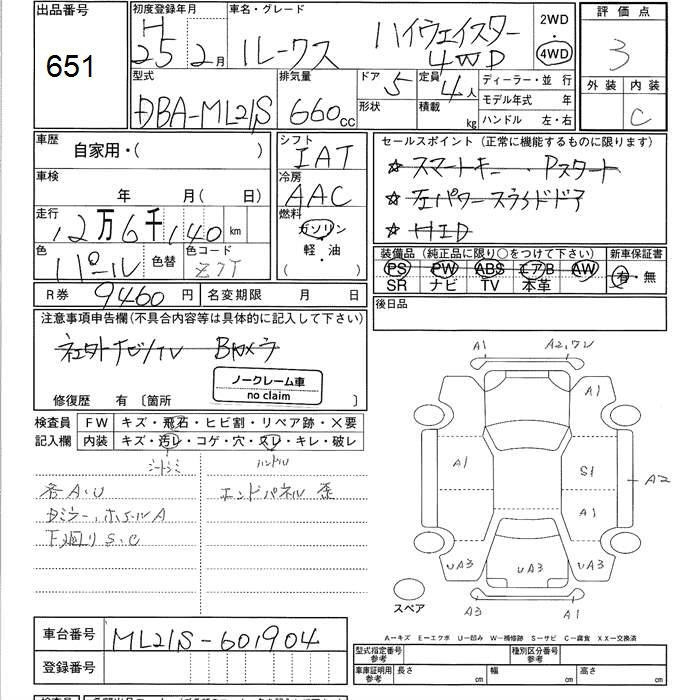 出品番号
651
初度登録年月
H
25 2月
車名・グレード
ルークス ハイウェイスター
4WD
2WD
4WD
評価点
3
外装 内装
C
型式
DBA-ML21S
排気量
660cc
ドア
5
形状
定員
4人
積載 kg
ディーラー・並 行
モデル年式 年
ハンドル 左・右
車歴
自家用・( )
車検
年 月( 日)
走行
12万6千140 km
色
パール
色替
色コード
Z7T
シフト
IAT
冷房
AAC
燃料
ガソリン
軽・油
( )
セールスポイント(正常に機能するものに限ります)
☆ スマートキー・Pスタート
☆ 左パワースライドドア
☆ HID
装備品(純正品に限り○をつけて下さい)
新車保証書
PS PW ABS エアB AW
SR ナビ TV 本革
有・無
R券 9460円
名変期限 月 日
後日品
注意事項申告欄(不具合内容等は具体的に記入して下さい)
社外ナビ/TV Bカメラ
ノークレーム車
no claim
修復歴 有〔箇所 〕
検査員
記入欄
FW キズ・飛石・ヒビ割・リペア跡・×要
内装 キズ・汚レ・コゲ・穴・スレ・キレ・破レ
シートシミ
ハンドル
各A.U
エンドパネル 歪
Dミラー、ホイールA
下廻りS.C
A1
A1
A1
S1
A2
A1
UA3
UA3
UA3
A3
A1
スペア
A―キズ E―エクボ U―凹み W―補修跡 S―サビ C―腐食 XX―交換済
車台番号
ML21S-601904
登録番号
型式指定番号
参考
種別区分番号
参考
車庫証明用
参考
長さ cm
幅 cm
高さ cm